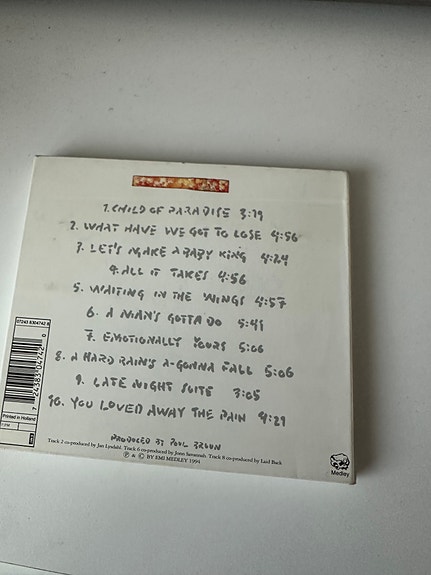 1. CHILD OF PARADISE 3:19
2. WHAT HAVE WE GOT TO LOSE 4:56
3. LET'S MAKE A BABY KING 4:24
4. ALL IT TAKES 4:56
5. WAITING IN THE WINGS 4:57
6. A MAN'S GOTTA DO 5:41
7. EMOTIONALLY YOURS 5:06
8. A HARD RAIN'S A-GONNA FALL 5:06
9. LATE NIGHT SUITE 3:05
10. YOU LOVED AWAY THE PAIN 4:29
PRODUCED BY POUL BRUUN
Track 2 co-produced by Jan Lysdahl. Track 6 co-produced by Jonn Savannah. Track 8 co-produced by Laid Back
℗ & © BY EMI MEDLEY 1994
07243 8304742 8
7 24383 04742
Printed in Holland
Medley